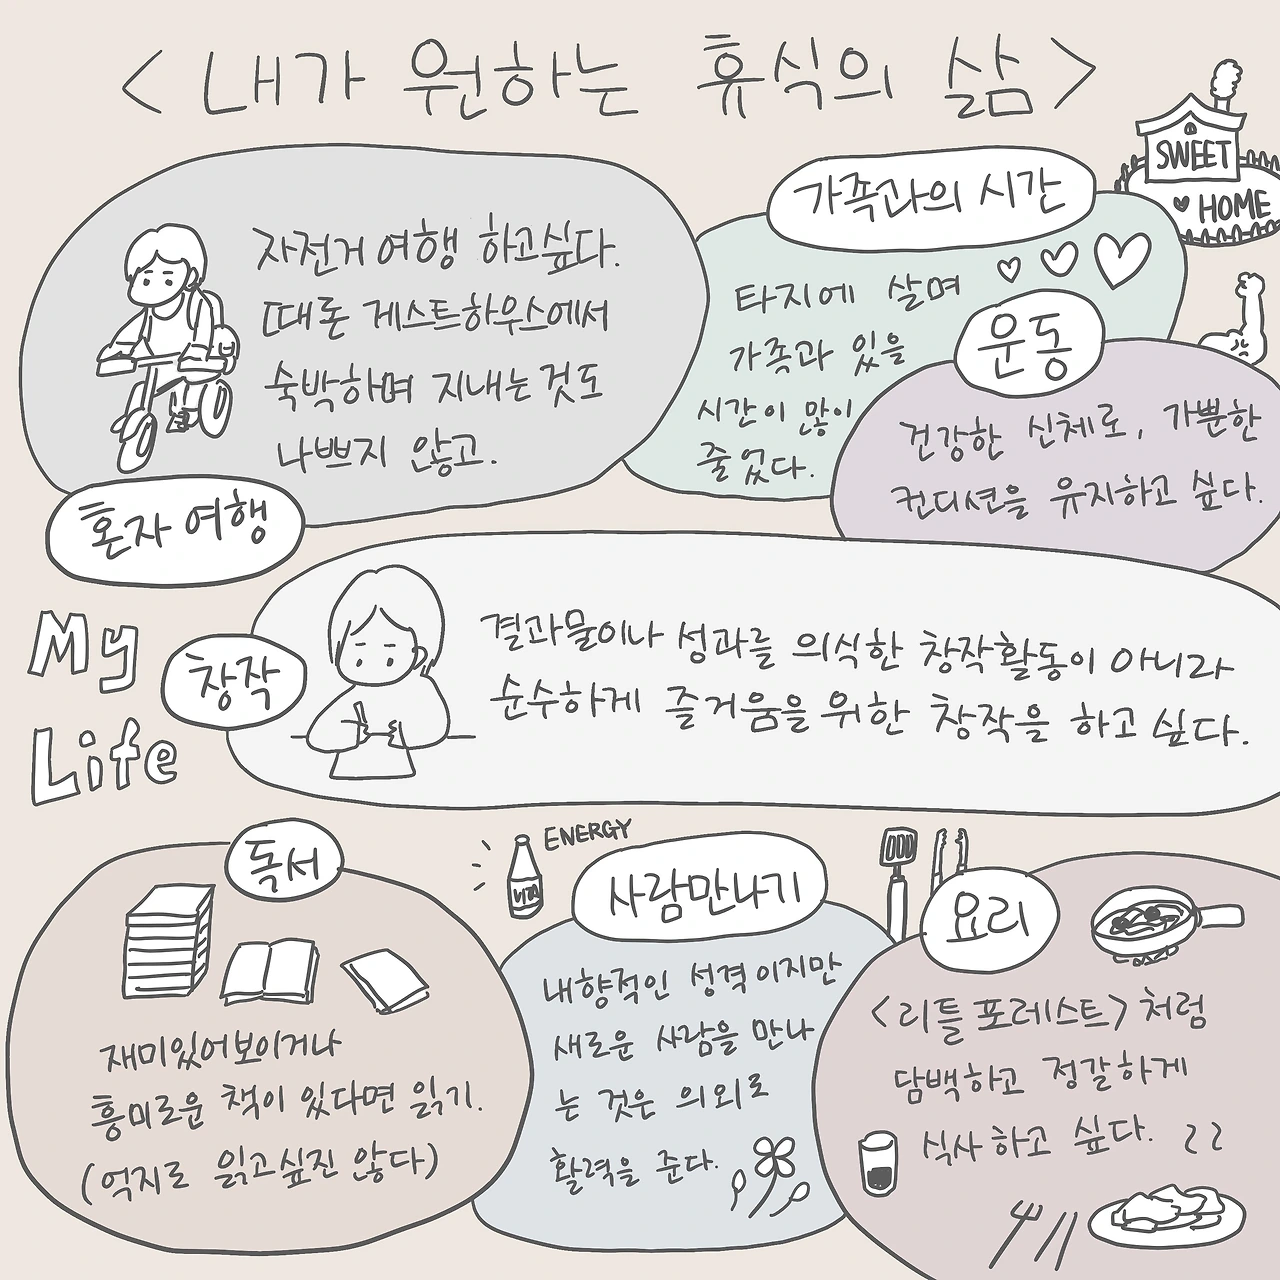 <내가 원하는 휴식의 삶>
SWEET
HOME
자전거 여행 하고싶다.
때론 게스트하우스에서
숙박하며 지내는것도
나쁘지 않고.
혼자 여행
가족과의 시간
타지에 살며
가족과 있을
시간이 많이
줄었다.
운동
건강한 신체로, 가뿐한
컨디션을 유지하고 싶다.
My
Life
창작
결과물이나 성과를 의식한 창작활동이 아니라
순수하게 즐거움을 위한 창작을 하고 싶다.
독서
재미있어보이거나
흥미로운 책이 있다면 읽기.
(억지로 읽고싶진 않다)
ENERGY
VITA
사람만나기
내향적인 성격이지만
새로운 사람을 만나
는 것은 의외로
활력을 준다.
요리
<리틀 포레스트>처럼
담백하고 정갈하게
식사하고 싶다.